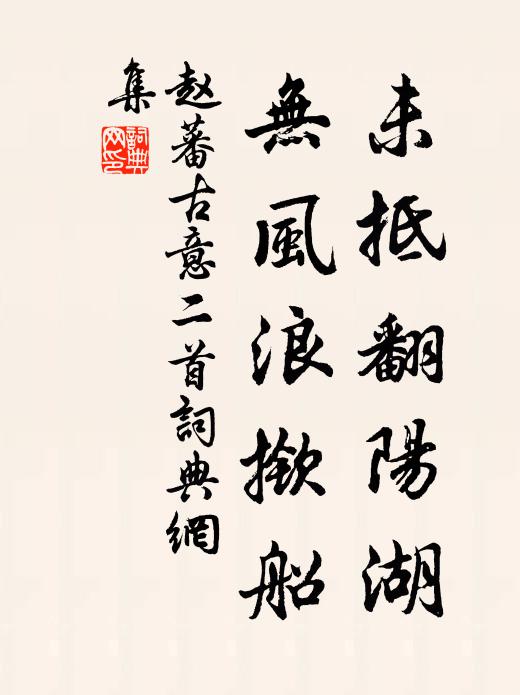 未抵翻陽湖
無風浪掀船
赵蕃古意二首詞典網
集
詞典
网印